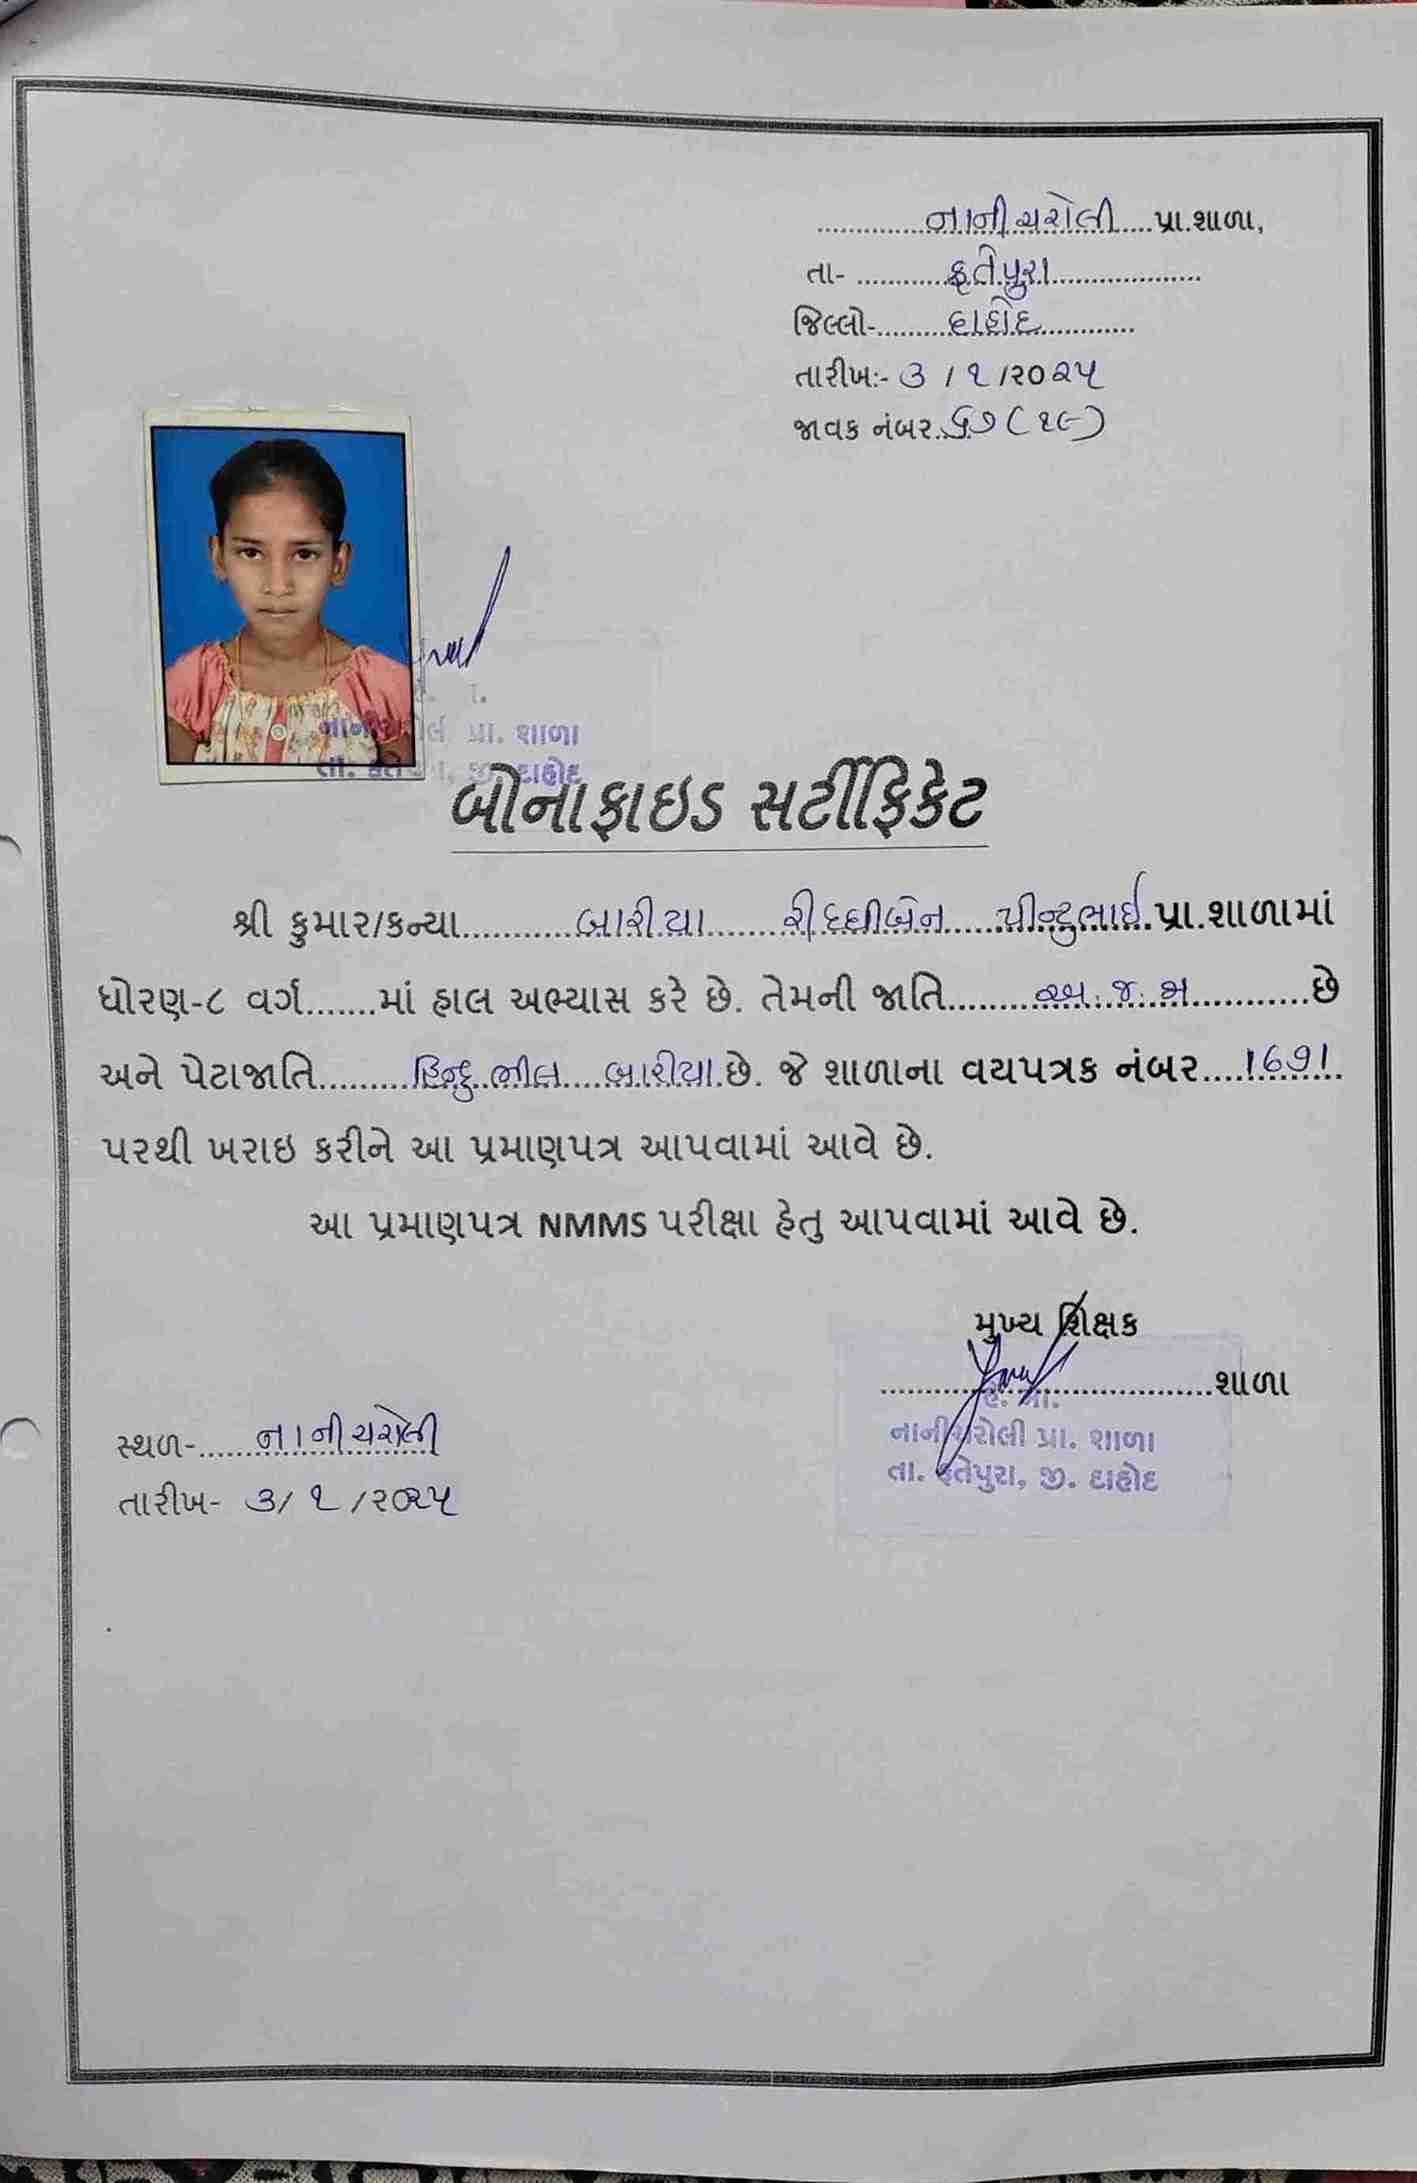 ............નાનીચરોલી....પ્રા.શાળા,
તા- ..........ફતેપુરા..................
જિલ્લો-........દાહોદ............
તારીખ:- ૩ / ૧ /૨૦૨૫
જાવક નંબર..૬૭(૧૯)
પ્રા. શાળા
જી. દાહોદ
બોનાફાઇડ સર્ટીફિકેટ
શ્રી કુમાર/કન્યા...........બારીયા.......રીદ્ધીબેન.....પીન્ટુભાઈ.પ્રા.શાળામાં
ધોરણ-૮ વર્ગ.......માં હાલ અભ્યાસ કરે છે. તેમની જાતિ.........અ.જ.જા............છે
અને પેટાજાતિ.........હિન્દુ ભીલ....બારીયા.છે. જે શાળાના વયપત્રક નંબર....1671
પરથી ખરાઇ કરીને આ પ્રમાણપત્ર આપવામાં આવે છે.
આ પ્રમાણપત્ર NMMS પરીક્ષા હેતુ આપવામાં આવે છે.
મુખ્ય શિક્ષક
..................................શાળા
નાનીચરોલી પ્રા. શાળા
તા. ફતેપુરા, જી. દાહોદ
સ્થળ-......નાનીચરોલી
તારીખ- ૩/ ૧ /૨૦૨૫